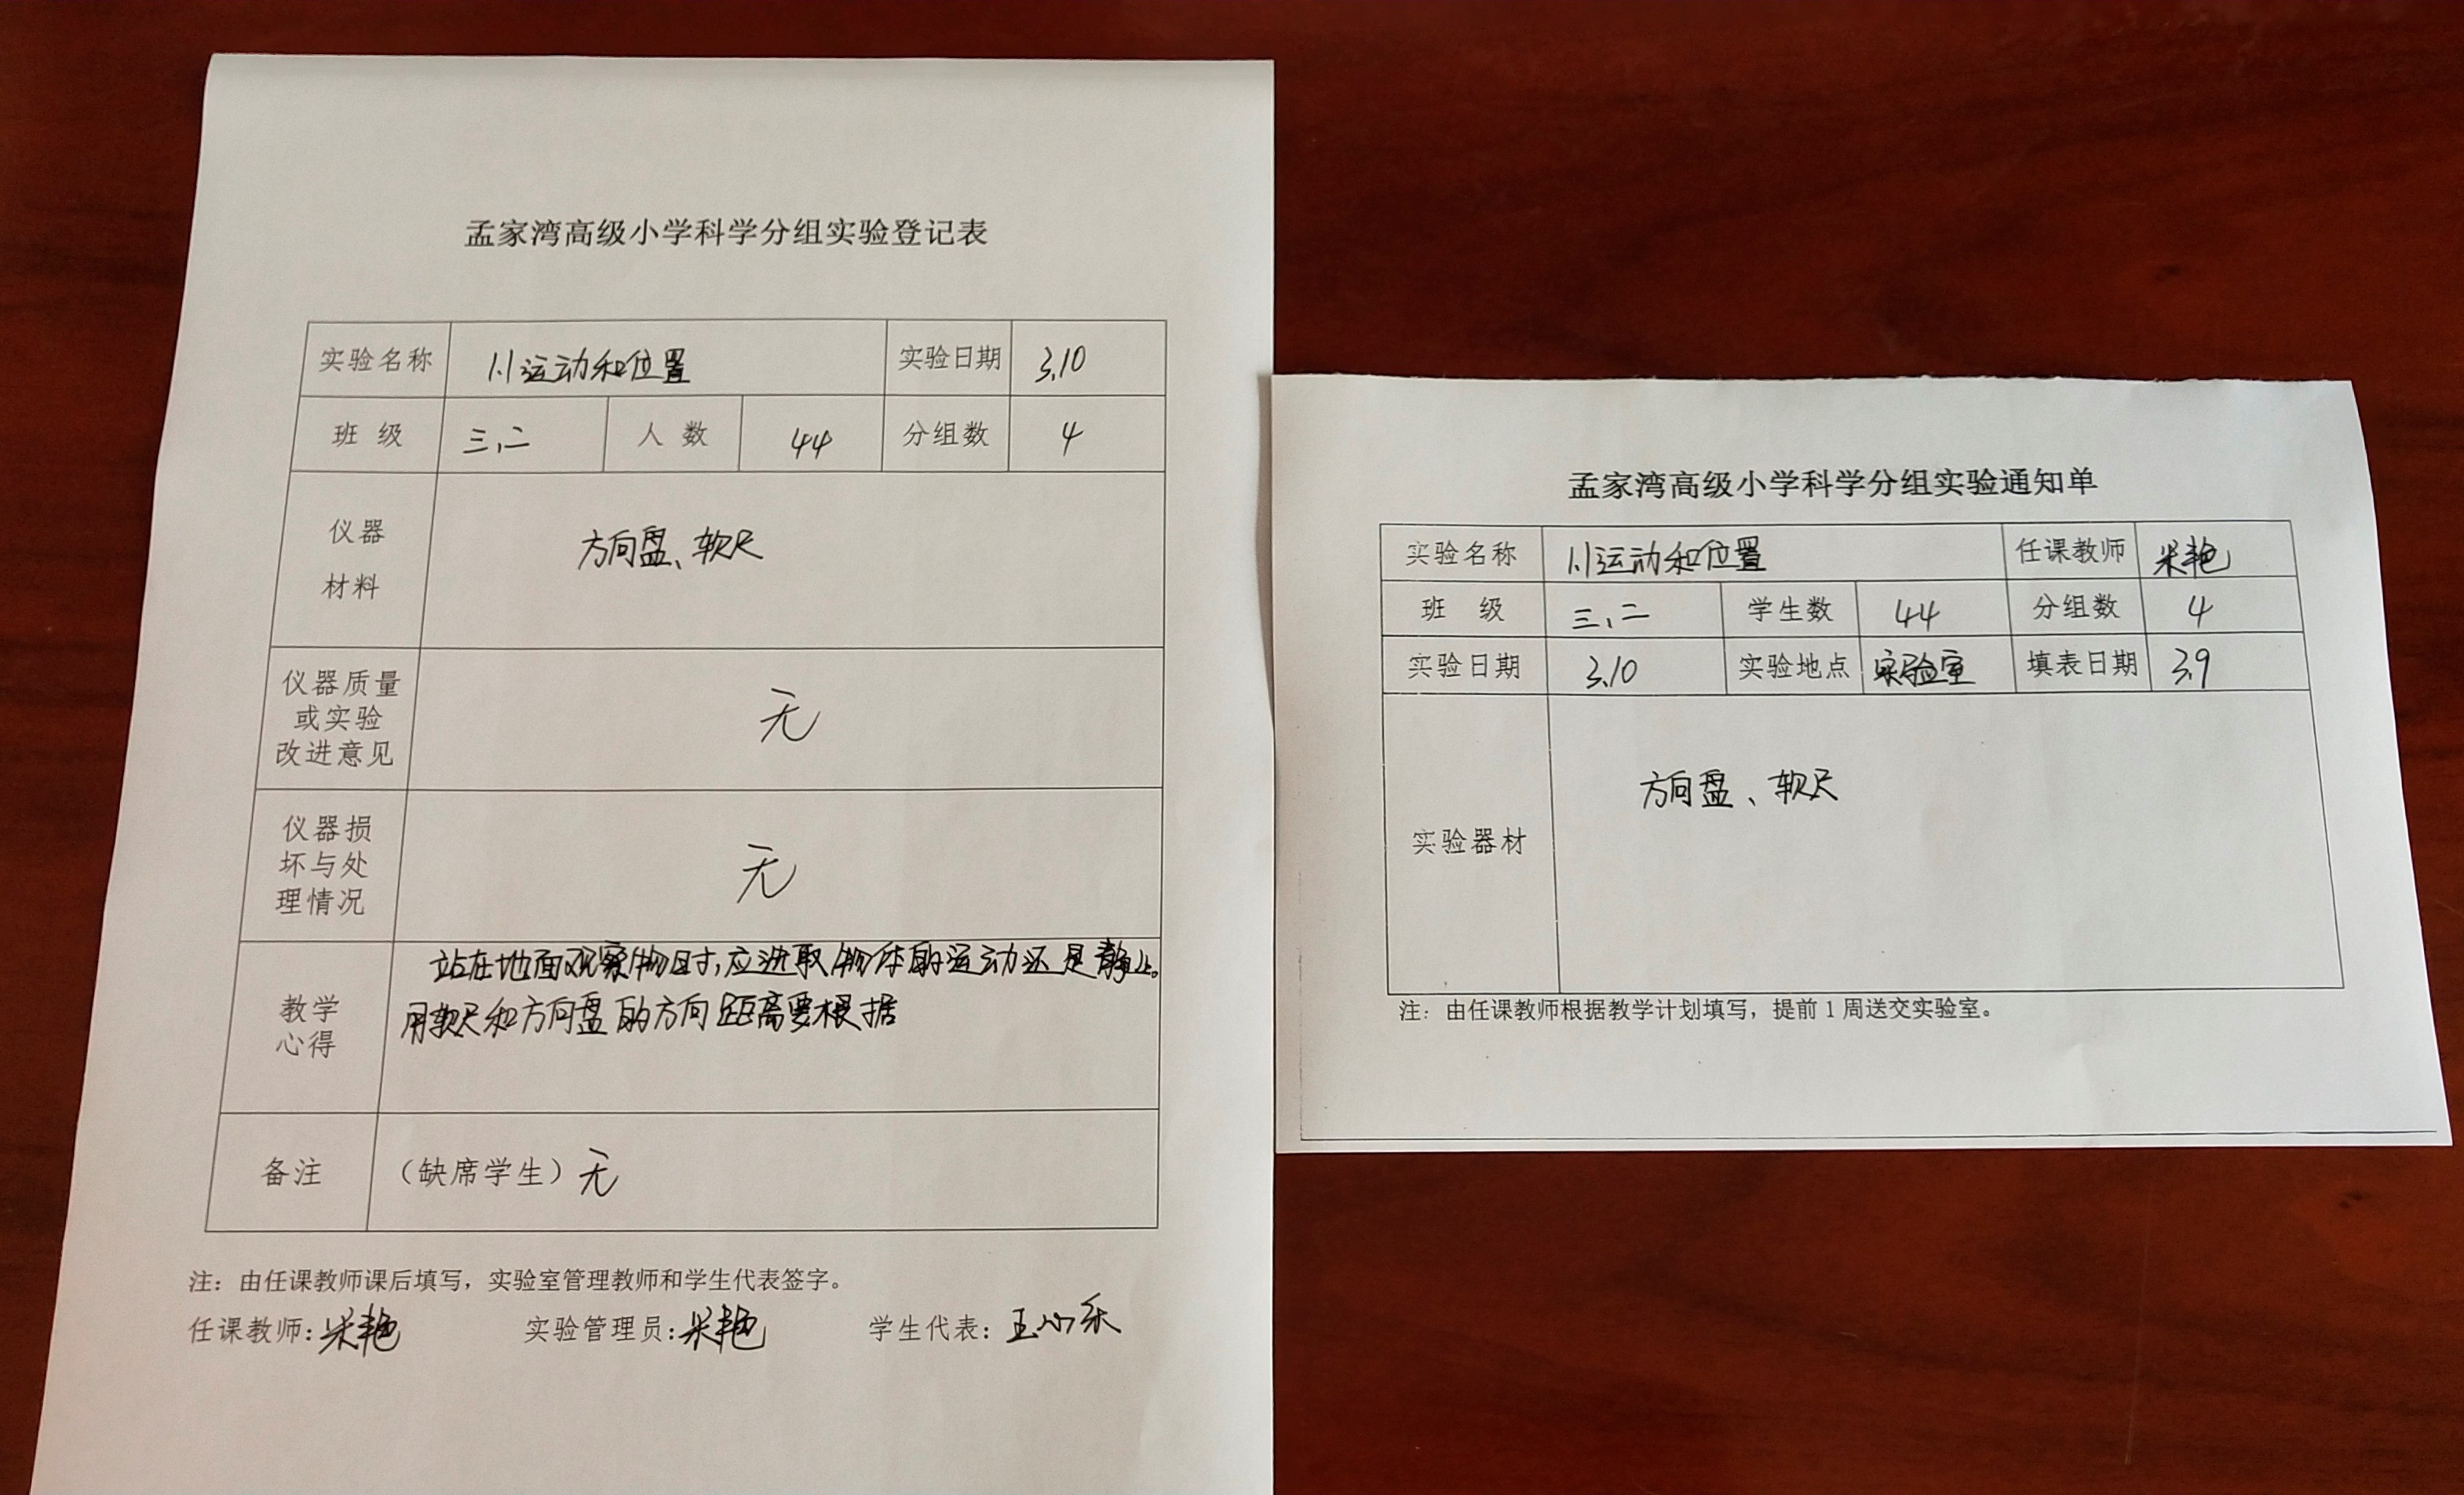 孟家湾高级小学科学分组实验登记表
实验名称 1.1运动和位置 实验日期 3.10
班 级 三、二 人 数 44 分组数 4
仪器
材料
方向盘、软尺
仪器质量
或实验
改进意见
无
仪器损
坏与处
理情况
无
教学
心得
站在地面观察物时,应选取物体的运动还是静止。
用软尺和方向盘的方向距离要根据
备注 (缺席学生)无
注：由任课教师课后填写，实验室管理教师和学生代表签字。
任课教师:米艳 实验管理员:米艳 学生代表：王
孟家湾高级小学科学分组实验通知单
实验名称 1.1运动和位置 任课教师 米艳
班 级 三、二 学生数 44 分组数 4
实验日期 3.10 实验地点 实验室 填表日期 3.9
实验器材 方向盘、软尺
注：由任课教师根据教学计划填写，提前1周送交实验室。